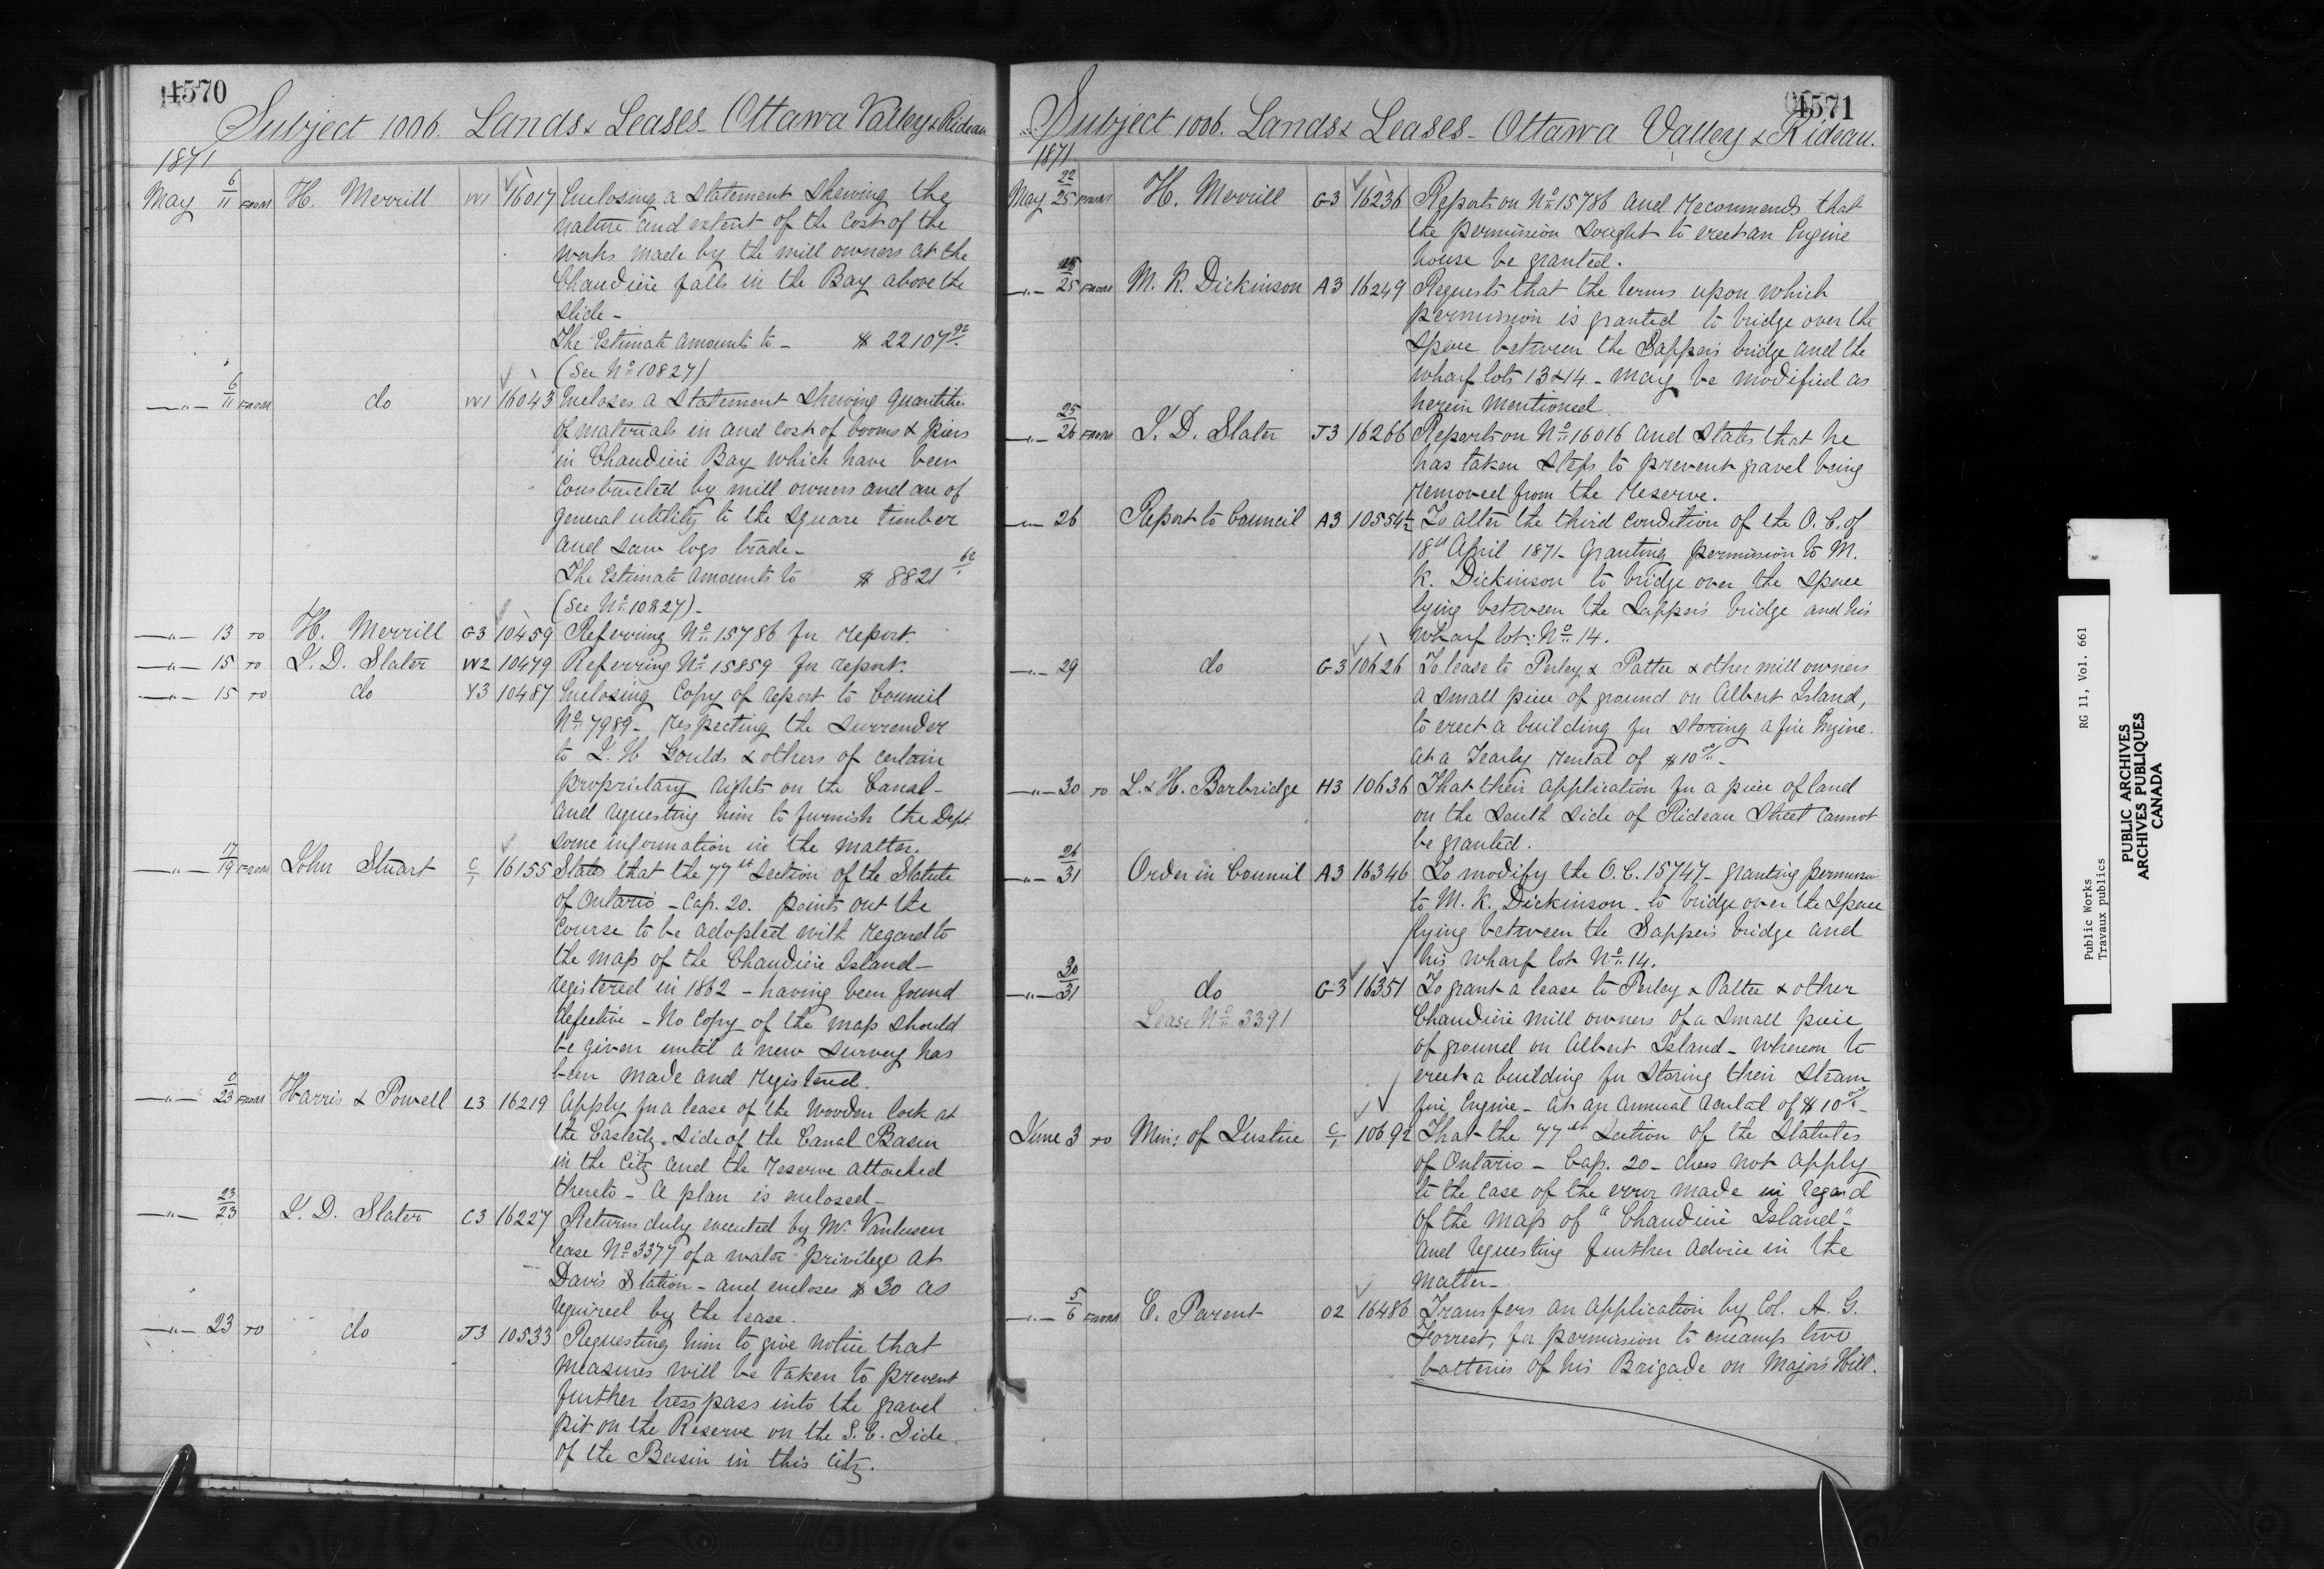 4570
Subject 1006. Lands & Leases - Ottawa Valley & Rideau
1871
May 6/11 FROM H. Merrill W1 16017 Enclosing a Statement shewing the
nature and extent of the cost of the
works made by the mill owners at the
Chaudière falls in the Bay above the
slide -
The Estimate amounts to - $ 22107 92.
(See No. 10827)
-"- 6/11 FROM do W1 16043 Encloses a Statement shewing quantities
of materials in and cost of booms & piers
in Chaudière Bay which have been
constructed by mill owners and are of
general utility to the square timber
and saw logs trade -
The Estimate amounts to $ 8821
(See No. 10827) -
-"- 13 TO H. Merrill G3 10459 Referring No. 15786 for report.
-"- 15 TO J. D. Slater W2 10479 Referring No. 15859 for report.
-"- 15 TO do Y3 10487 Enclosing Copy of report to Council
No. 7989 - respecting the surrender
to I. H. Goulds & others of certain
proprietary rights on the Canal -
and requesting him to furnish the Dept.
some information in the matter.
-"- 17/19 FROM John Stuart C/1 16155 States that the 77th Section of the Statute
of Ontario - Cap. 20. points out the
course to be adopted with regard to
the map of the Chaudière Island -
registered in 1862 - having been found
defective - No copy of the map should
be given until a new survey has
been made and registered.
-"- 0/23 FROM Harris & Powell L3 16219 Apply for a lease of the Wooden lock at
the Easterly side of the Canal Basin
in the City and the reserve attached
thereto - A plan is enclosed -
-"- 23/23 J. D. Slater C3 16227 Returns duly executed by Mr. Vanlusen
lease No. 3377 of a water privilege at
Davis Station - and encloses $ 30 as
required by the lease.
-"- 23 TO do J3 10533 Requesting him to give notice that
measures will be taken to prevent
further tresspass into the gravel
pit on the Reserve on the S. E. Side
of the Basin in this City.
4571
Subject 1006. Lands & Leases - Ottawa Valley & Rideau.
1871
May 22/25 FROM H. Merrill G3 16236 Reports on No. 15786 and recommends that
the permission sought to erect an Engine
house be granted.
-"- 25/25 FROM M. K. Dickinson A3 16249 Requests that the terms upon which
permission is granted to bridge over the
space between the Sappers bridge and the
wharf lots 13 & 14 - may be modified as
herein mentioned.
-"- 25/26 FROM J. D. Slater J3 16266 Reports on No. 16016 and states that he
has taken steps to prevent gravel being
removed from the reserve.
-"- 26 Report to Council A3 10554½ To alter the third condition of the O. C. of
18th April 1871 - Granting permission to M.
K. Dickinson to bridge over the space
lying between the Sappers bridge and his
wharf lot: No. 14.
-"- 29 do G3 10626 To lease to Perley & Pattee & other mill owners
a small piece of ground on Albert Island,
to erect a building for storing a fire Engine.
at a Yearly rental of $10 00 -
-"- 30 TO L. & H. Borbridge H3 10636 That their application for a piece of land
on the South Side of Rideau Street cannot
be granted.
-"- 26/31 Order in Council A3 16346 To modify the O. C. 15747 - granting permission
to M. K. Dickinson to bridge over the space
lying between the Sappers bridge and
his wharf lot No. 14.
-"- 30/31 do G3 16351 To grant a lease to Perley & Pattee & other
Lease No. 3391 Chaudière mill owners of a small piece
of ground on Albert Island - whereon to
erect a building for storing their steam
fire Engine - at an annual rental of $10 00 -
June 3 TO Min: of Justice C/1 10692 That the 77th Section of the Statutes
of Ontario - Cap. 20 - does not apply
to the case of the error made in regard
of the map of "Chaudière Island" -
and requesting further advice in the
matter -
-"- 5/6 FROM E. Parent O2 16486 Transfers an application by Col. A. G.
Forrest, for permission to encamp two
batteries of his Brigade on Majors Hill.
Public Works RG 11, Vol. 661
Travaux publics
PUBLIC ARCHIVES
ARCHIVES PUBLIQUES
CANADA